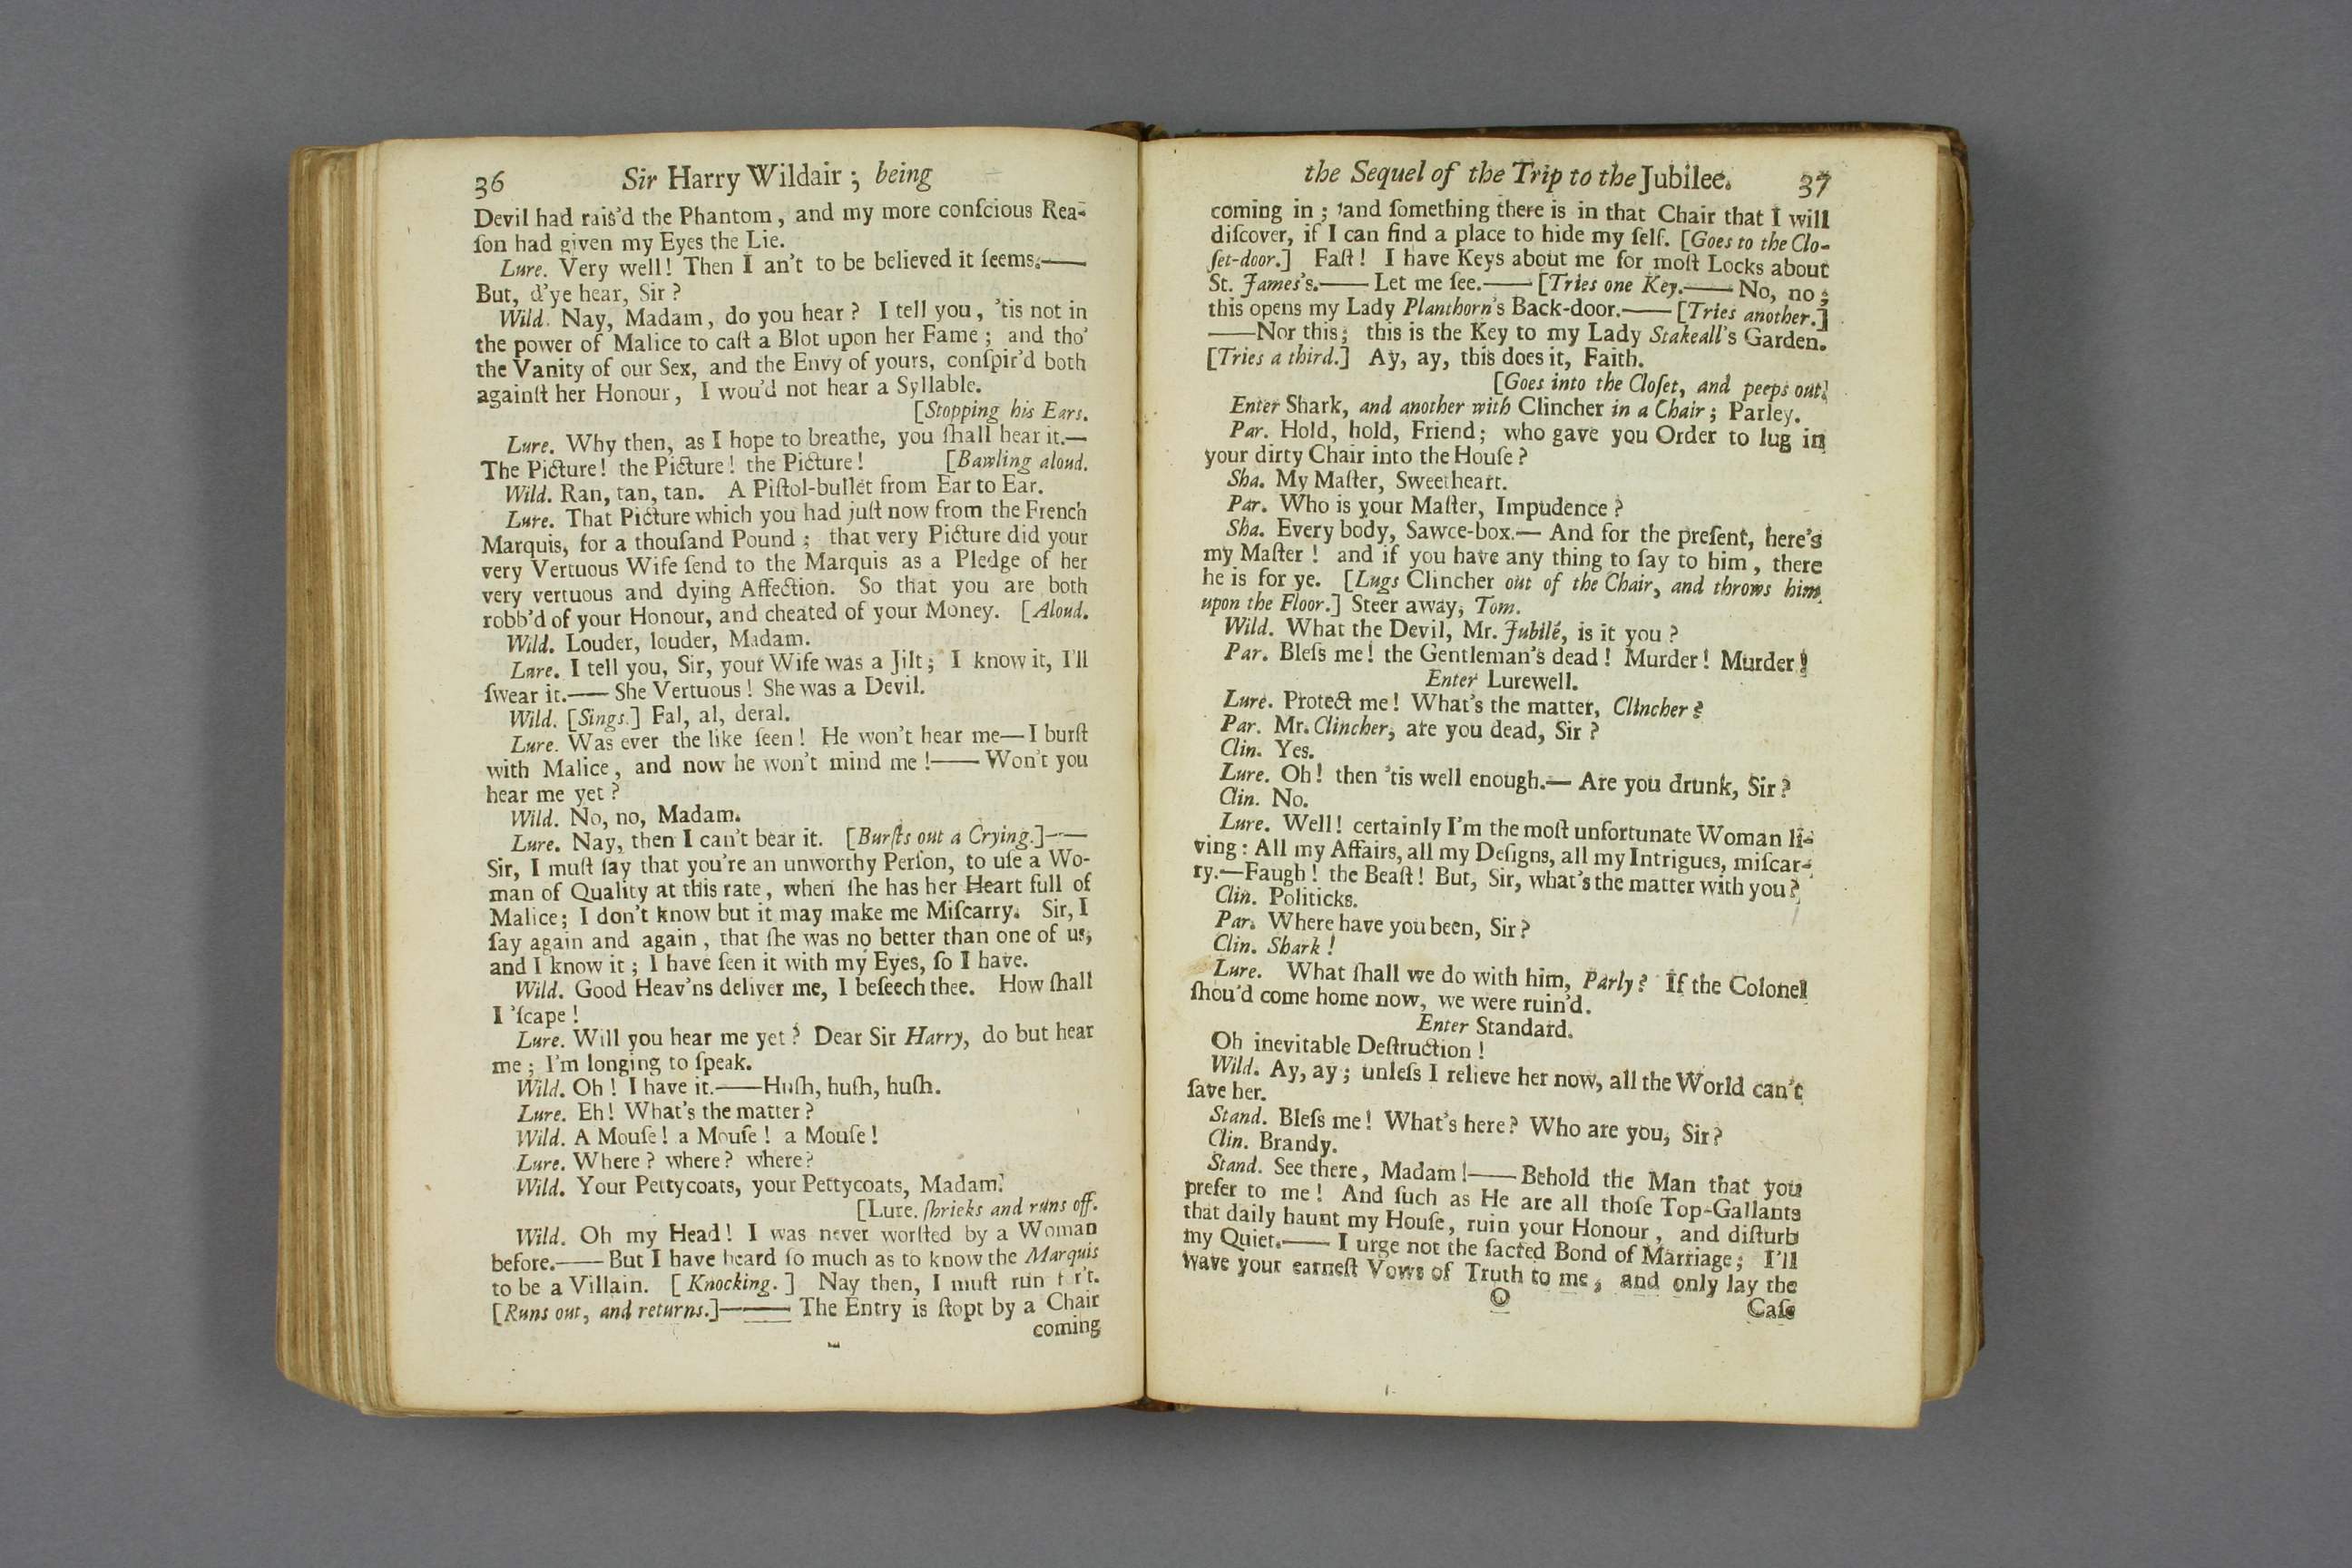 36 Sir Harry Wildair; being
Devil had rais'd the Phantom, and my more conſcious Rea-
ſon had given my Eyes the Lie.
Lure. Very well! Then I an't to be believed it ſeems.——
But, d'ye hear, Sir?
Wild. Nay, Madam, do you hear? I tell you, 'tis not in
the power of Malice to caſt a Blot upon her Fame; and tho'
the Vanity of our Sex, and the Envy of yours, conſpir'd both
againſt her Honour, I wou'd not hear a Syllable.
[Stopping his Ears.
Lure. Why then, as I hope to breathe, you ſhall hear it.—
The Picture! the Picture! the Picture! [Bawling aloud.
Wild. Ran, tan, tan. A Piſtol-bullet from Ear to Ear.
Lure. That Picture which you had juſt now from the French
Marquis, for a thouſand Pound; that very Picture did your
very Vertuous Wife ſend to the Marquis as a Pledge of her
very vertuous and dying Affection. So that you are both
robb'd of your Honour, and cheated of your Money. [Aloud.
Wild. Louder, louder, Madam.
Lure. I tell you, Sir, your Wife was a Jilt; I know it, I'll
ſwear it.—— She Vertuous! She was a Devil.
Wild. [Sings.] Fal, al, deral.
Lure. Was ever the like ſeen! He won't hear me—I burſt
with Malice, and now he won't mind me!—— Won't you
hear me yet?
Wild. No, no, Madam.
Lure. Nay, then I can't bear it. [Burſts out a Crying.]——
Sir, I muſt ſay that you're an unworthy Perſon, to uſe a Wo-
man of Quality at this rate, when ſhe has her Heart full of
Malice; I don't know but it may make me Miſcarry. Sir, I
ſay again and again, that ſhe was no better than one of us,
and I know it; I have ſeen it with my Eyes, ſo I have.
Wild. Good Heav'ns deliver me, I beſeech thee. How ſhall
I 'ſcape!
Lure. Will you hear me yet? Dear Sir Harry, do but hear
me; I'm longing to ſpeak.
Wild. Oh! I have it.——Huſh, huſh, huſh.
Lure. Eh! What's the matter?
Wild. A Mouſe! a Mouſe! a Mouſe!
Lure. Where? where? where?
Wild. Your Pettycoats, your Pettycoats, Madam.
[Lure. ſhrieks and runs off.
Wild. Oh my Head! I was never worſted by a Woman
before.——But I have heard ſo much as to know the Marquis
to be a Villain. [Knocking.] Nay then, I muſt run
[Runs out, and returns.]—— The Entry is ſtopt by a Chair
coming
the Sequel of the Trip to the Jubilee. 37
coming in; and ſomething there is in that Chair that I will
diſcover, if I can find a place to hide my ſelf. [Goes to the Clo-
ſet-door.] Faſt! I have Keys about me for moſt Locks about
St. James's.—— Let me ſee.—— [Tries one Key.—— No, no;
this opens my Lady Planthorn's Back-door.—— [Tries another.]
——Nor this; this is the Key to my Lady Stakeall's Garden.
[Tries a third.] Ay, ay, this does it, Faith.
[Goes into the Cloſet, and peeps out.
Enter Shark, and another with Clincher in a Chair; Parley.
Par. Hold, hold, Friend; who gave you Order to lug in
your dirty Chair into the Houſe?
Sha. My Maſter, Sweetheart.
Par. Who is your Maſter, Impudence?
Sha. Every body, Sawce-box.— And for the preſent, here's
my Maſter! and if you have any thing to ſay to him, there
he is for ye. [Lugs Clincher out of the Chair, and throws him
upon the Floor.] Steer away, Tom.
Wild. What the Devil, Mr. Jubilé, is it you?
Par. Bleſs me! the Gentleman's dead! Murder! Murder!
Enter Lurewell.
Lure. Protect me! What's the matter, Clincher?
Par. Mr. Clincher, are you dead, Sir?
Clin. Yes.
Lure. Oh! then 'tis well enough.— Are you drunk, Sir?
Clin. No.
Lure. Well! certainly I'm the moſt unfortunate Woman li-
ving: All my Affairs, all my Deſigns, all my Intrigues, miſcar-
ry.—Faugh! the Beaſt! But, Sir, what's the matter with you?
Clin. Politicks.
Par. Where have you been, Sir?
Clin. Shark!
Lure. What ſhall we do with him, Parly? If the Colonel
ſhou'd come home now, we were ruin'd.
Enter Standard.
Oh inevitable Deſtruction!
Wild. Ay, ay; unleſs I relieve her now, all the World can't
ſave her.
Stand. Bleſs me! What's here? Who are you, Sir?
Clin. Brandy.
Stand. See there, Madam!—— Behold the Man that you
prefer to me! And ſuch as He are all thoſe Top-Gallants
that daily haunt my Houſe, ruin your Honour, and diſturb
my Quiet.—— I urge not the ſacred Bond of Marriage; I'll
wave your earneſt Vows of Truth to me, and only lay the
O Caſe